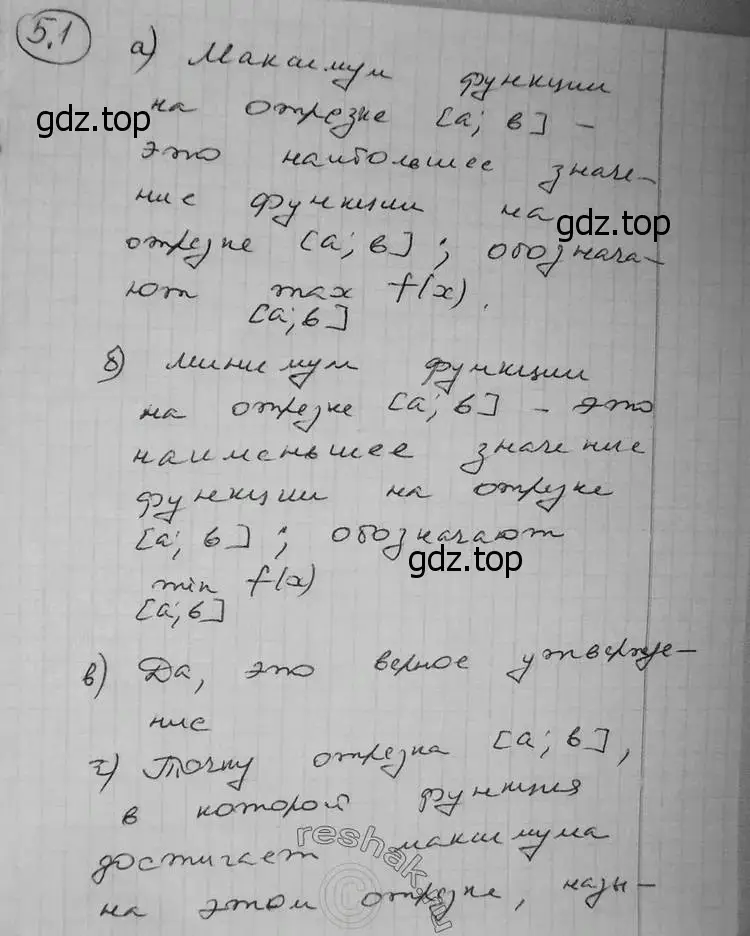 5.1
а) Максимум функции
на отрезке [a; в] –
gdz.top
это наибольшее значе-
ние функции на
gdz.top
отрезке [a; в]; обознача-
ют max f(x).
[a; в]
б) минимум функции
на отрезке [a; в] – это
наименьшее значение
функции на отрезке
[a; в]; обозначают
gdz.top
min f(x)
[a; в]
в) Да, это верное утвержде-
ние
г) Точку отрезка [a; в],
в которой функция
достигает максимума
на этом отрезке, назы-
reshak.ru